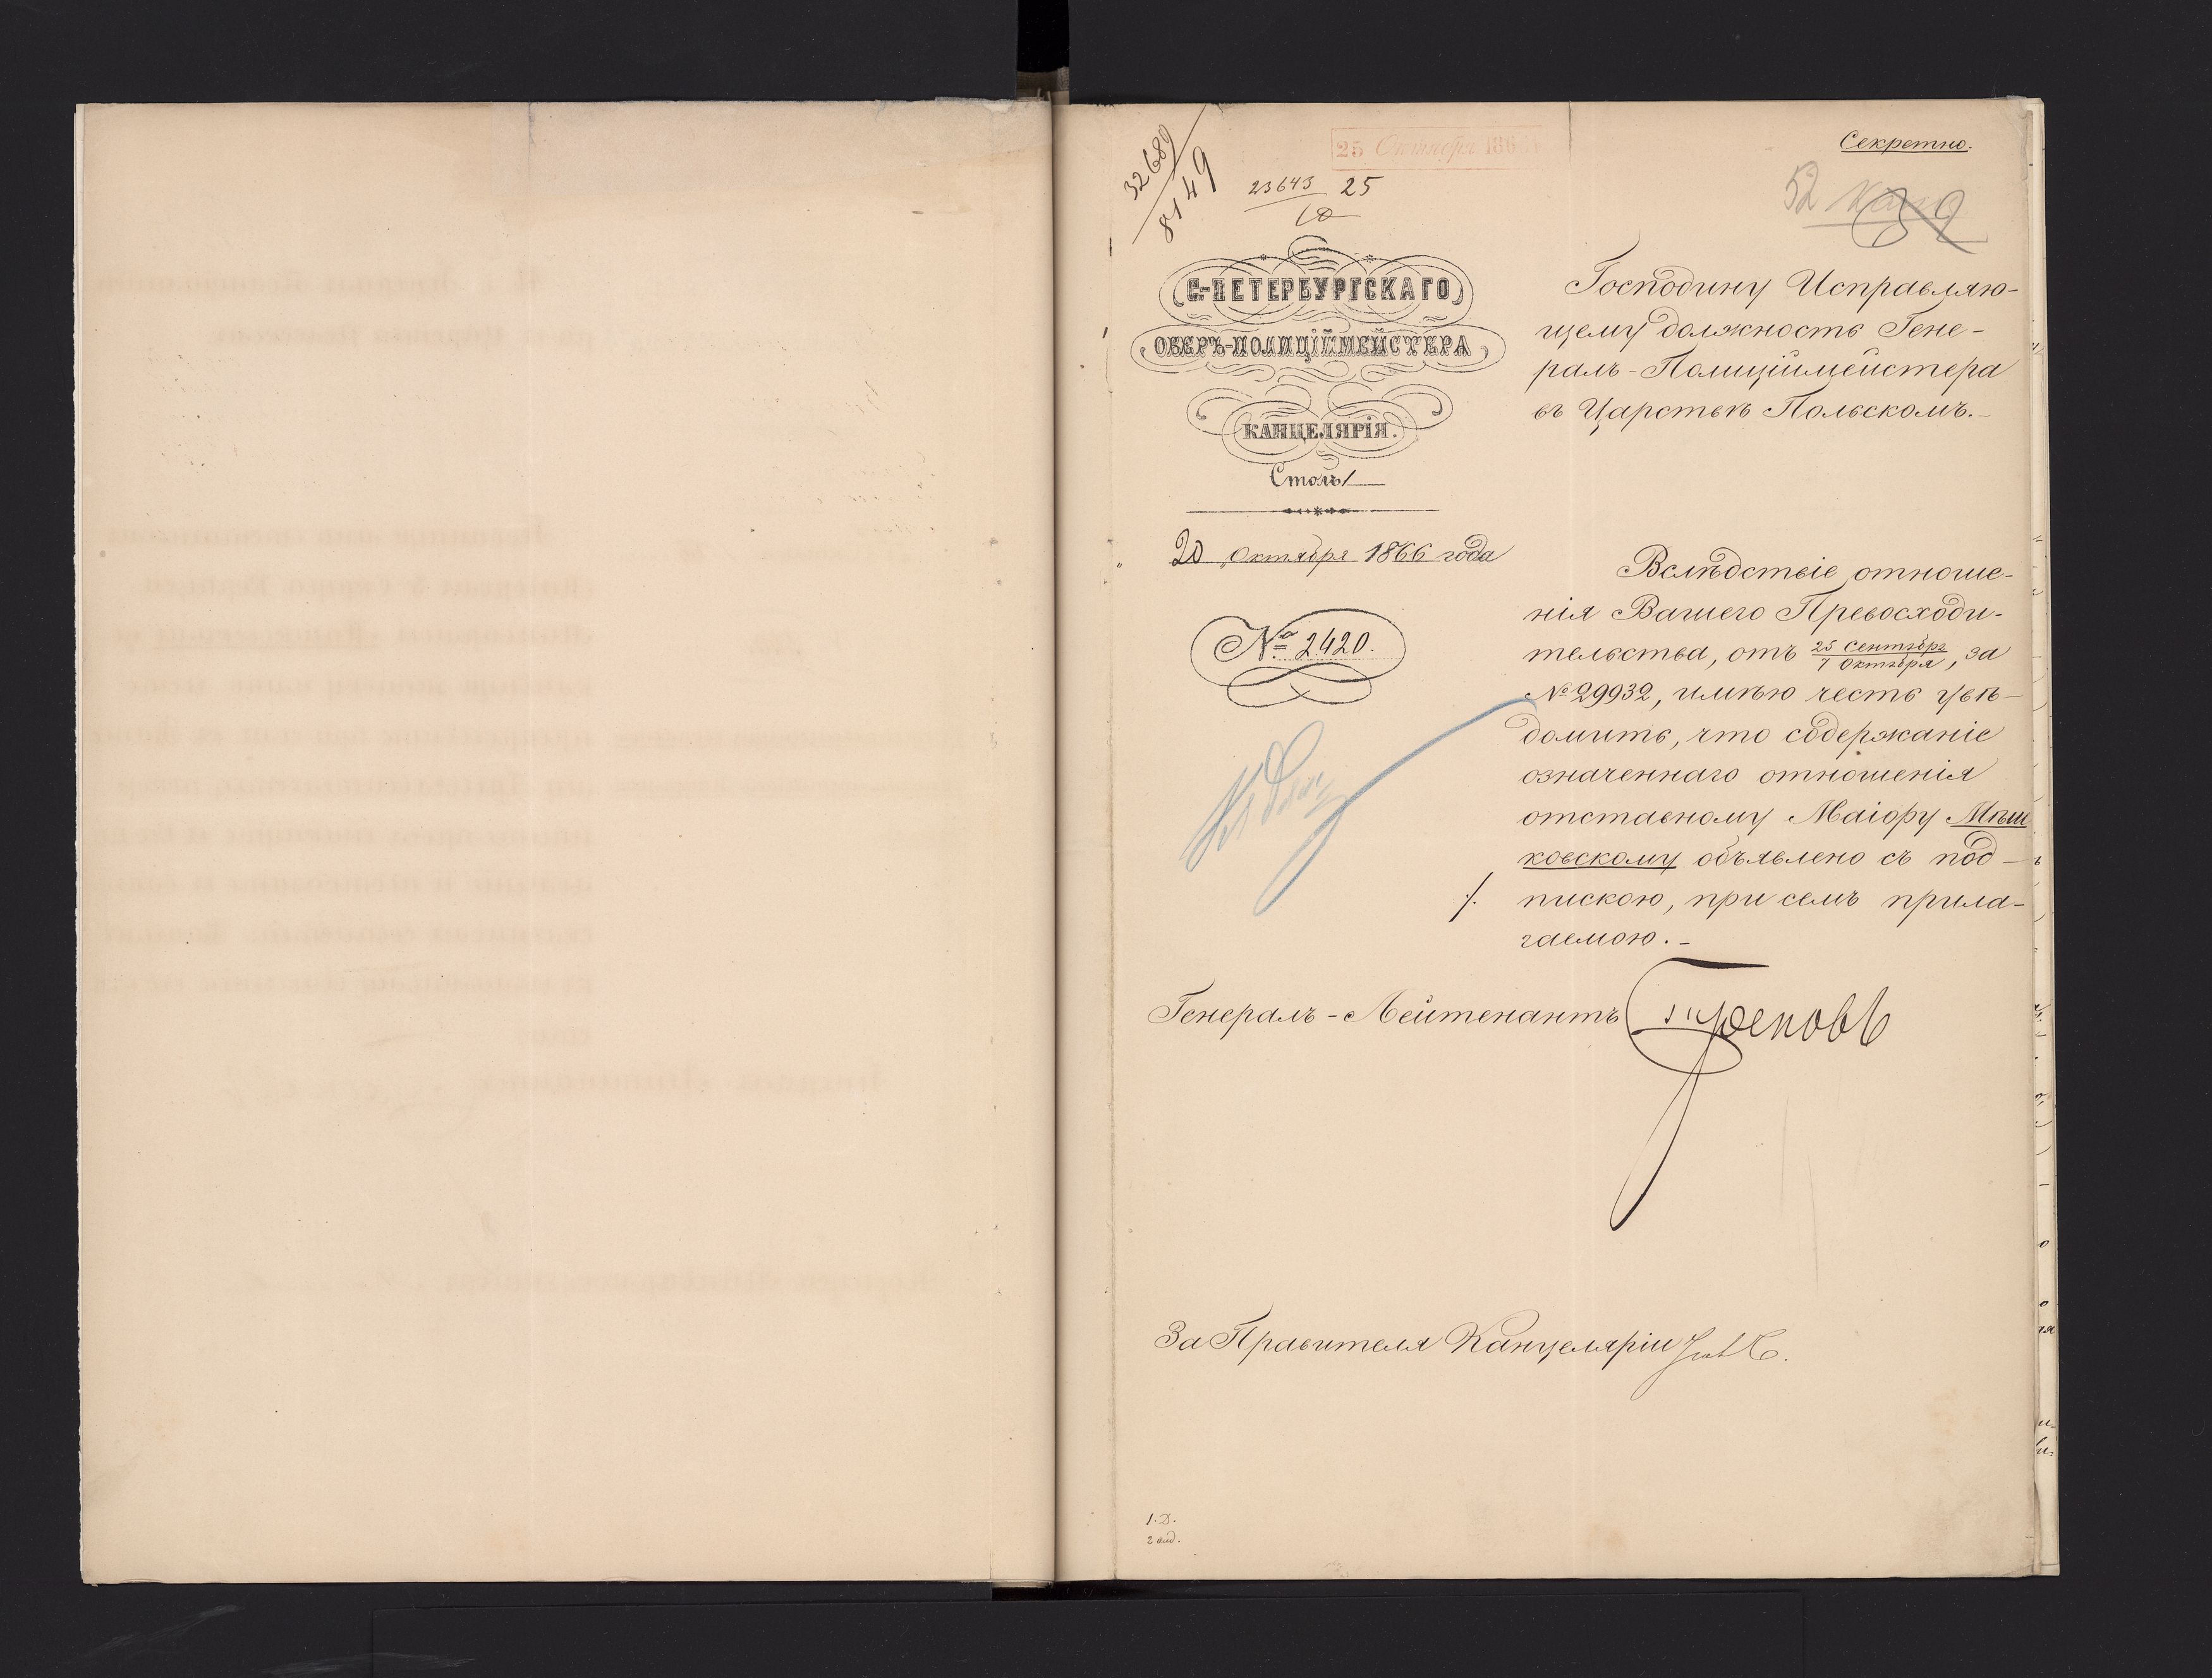 32689
8149
25 Октября 186
23643 25
10
Секретно.
52
С.-ПЕТЕРБУРГСКАГО
ОБЕРЪ-ПОЛИЦІЙМЕЙСТЕРА
КАНЦЕЛЯРІЯ.
Столъ 1
20 Октября 1866 года
№ 2420.
Господину Исправляю-
щему должность Гене-
ралъ-Полиціймейстера
въ Царствѣ Польскомъ.-
Вслѣдствіе отноше-
нія Вашего Превосходи-
тельства, отъ 25 Сентября / 7 Октября, за
№ 29932, имѣю честь увѣ-
домить, что содержаніе
означеннаго отношенія
отставному Маіору Мѣш
ковскому объявлено съ под-
/. пискою, при семъ прила-
гаемою.-
Генералъ-Лейтенантъ Треповъ
За Правителя Канцеляріи
1.Д.